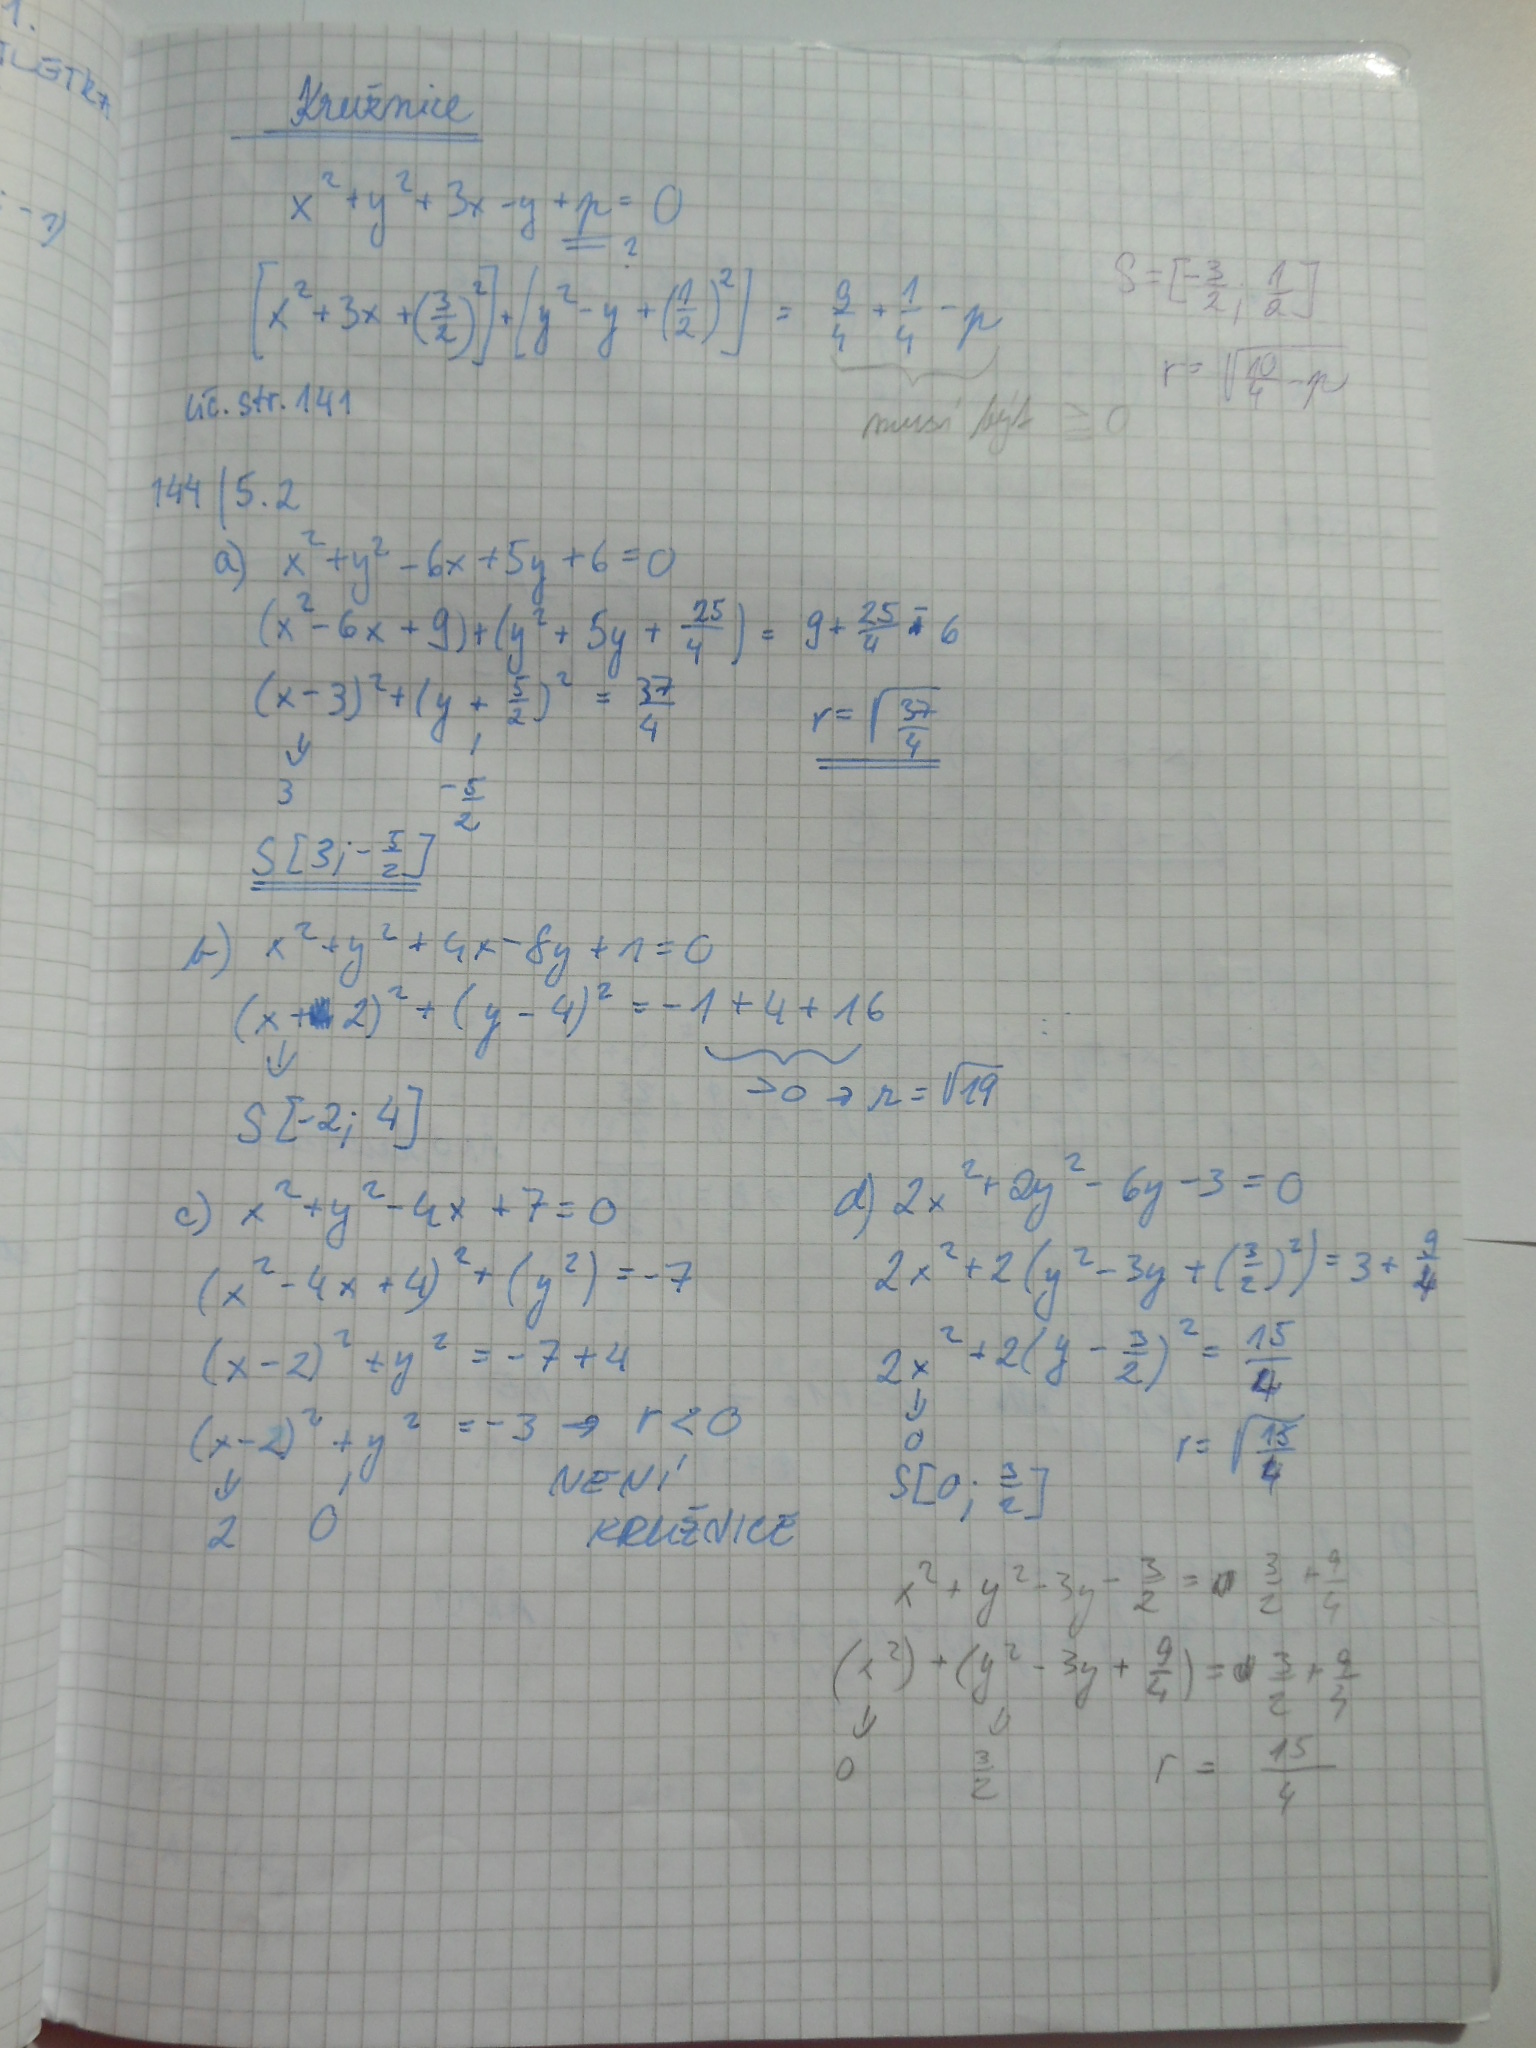 1.
Kružnice
x² + y² + 3x - y + p = 0
?
[x² + 3x + (3/2)²] + [y² - y + (1/2)²] = 9/4 + 1/4 - p
S = [-3/2; 1/2]
r = √(10/4 - p)
musí být ≥ 0
uč. str. 141
144 | 5.2
a) x² + y² - 6x + 5y + 6 = 0
(x² - 6x + 9) + (y² + 5y + 25/4) = 9 + 25/4 - 6
(x - 3)² + (y + 5/2)² = 37/4
r = √(37/4)
3 -5/2
S[3; -5/2]
b) x² + y² + 4x - 8y + 1 = 0
(x + 2)² + (y - 4)² = -1 + 4 + 16
>0 → r = √19
S[-2; 4]
c) x² + y² - 4x + 7 = 0
(x² - 4x + 4)² + (y²) = -7
(x - 2)² + y² = -7 + 4
(x - 2)² + y² = -3 → r < 0
2 0
NENÍ
KRUŽNICE
d) 2x² + 2y² - 6y - 3 = 0
2x² + 2(y² - 3y + (3/2)²) = 3 + 9/4
2x² + 2(y - 3/2)² = 15/4
0
r = √(15/4)
S[0; 3/2]
x² + y² - 3y - 3/2 = 3/2 + 9/4
(x²) + (y² - 3y + 9/4) = 3/2 + 9/4
0 3/2 r = 15/4